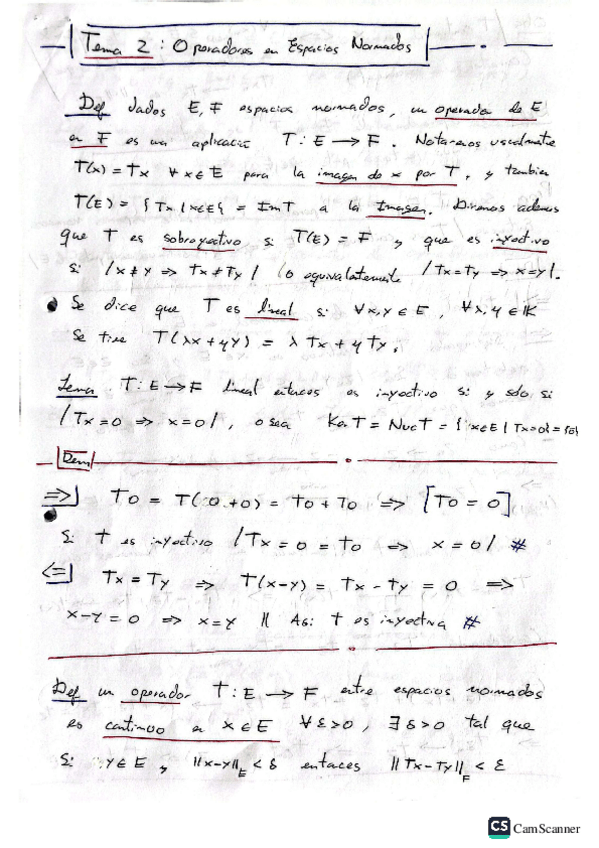 Tema 2: Operadores en Espacios Normados
Def dados E, F espacios normados, un operador de E
en F es una aplicació T: E → F. Notaremos usualmente
T(x) = Tx ∀x∈E para la imagen de x por T, y tambien
T(E) = {Tx | x∈E} = Im T a la Imagen. Diremos ademas
que T es sobreyectivo si T(E) = F y que es inyectivo
si /x≠y ⇒ Tx≠Ty/ (o equivalentemente /Tx=Ty ⇒ x=y/.
• Se dice que T es lineal si ∀x,y∈E, ∀λ,y∈IK
se tiene T(λx+yy) = λTx + yTy.
Lema T: E → F lineal entonces es inyectivo si y solo si
/Tx=0 ⇒ x=0/, o sea Ker T = Nuc T = {x∈E | Tx=0} = {0}
Dem
⇒| T0 = T(0+0) = T0 + T0 ⇒ [T0 = 0]
Si T es inyectivo /Tx = 0 = T0 ⇒ x = 0/ #
⇐| Tx = Ty ⇒ T(x-y) = Tx - Ty = 0 ⇒
x-y = 0 ⇒ x=y || Asi T es inyectiva #
Def un operador T: E → F entre espacios normados
es continuo en x∈E ∀ε>0, ∃δ>0 tal que
si y∈E y ||x-y||_E < δ entonces ||Tx-Ty||_F < ε
CS CamScanner